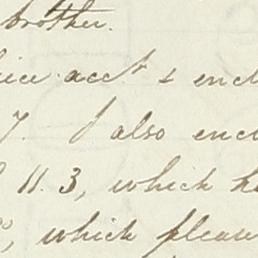 brother.
acct & encl
7. I also enc
11. 3, which h
which pleas